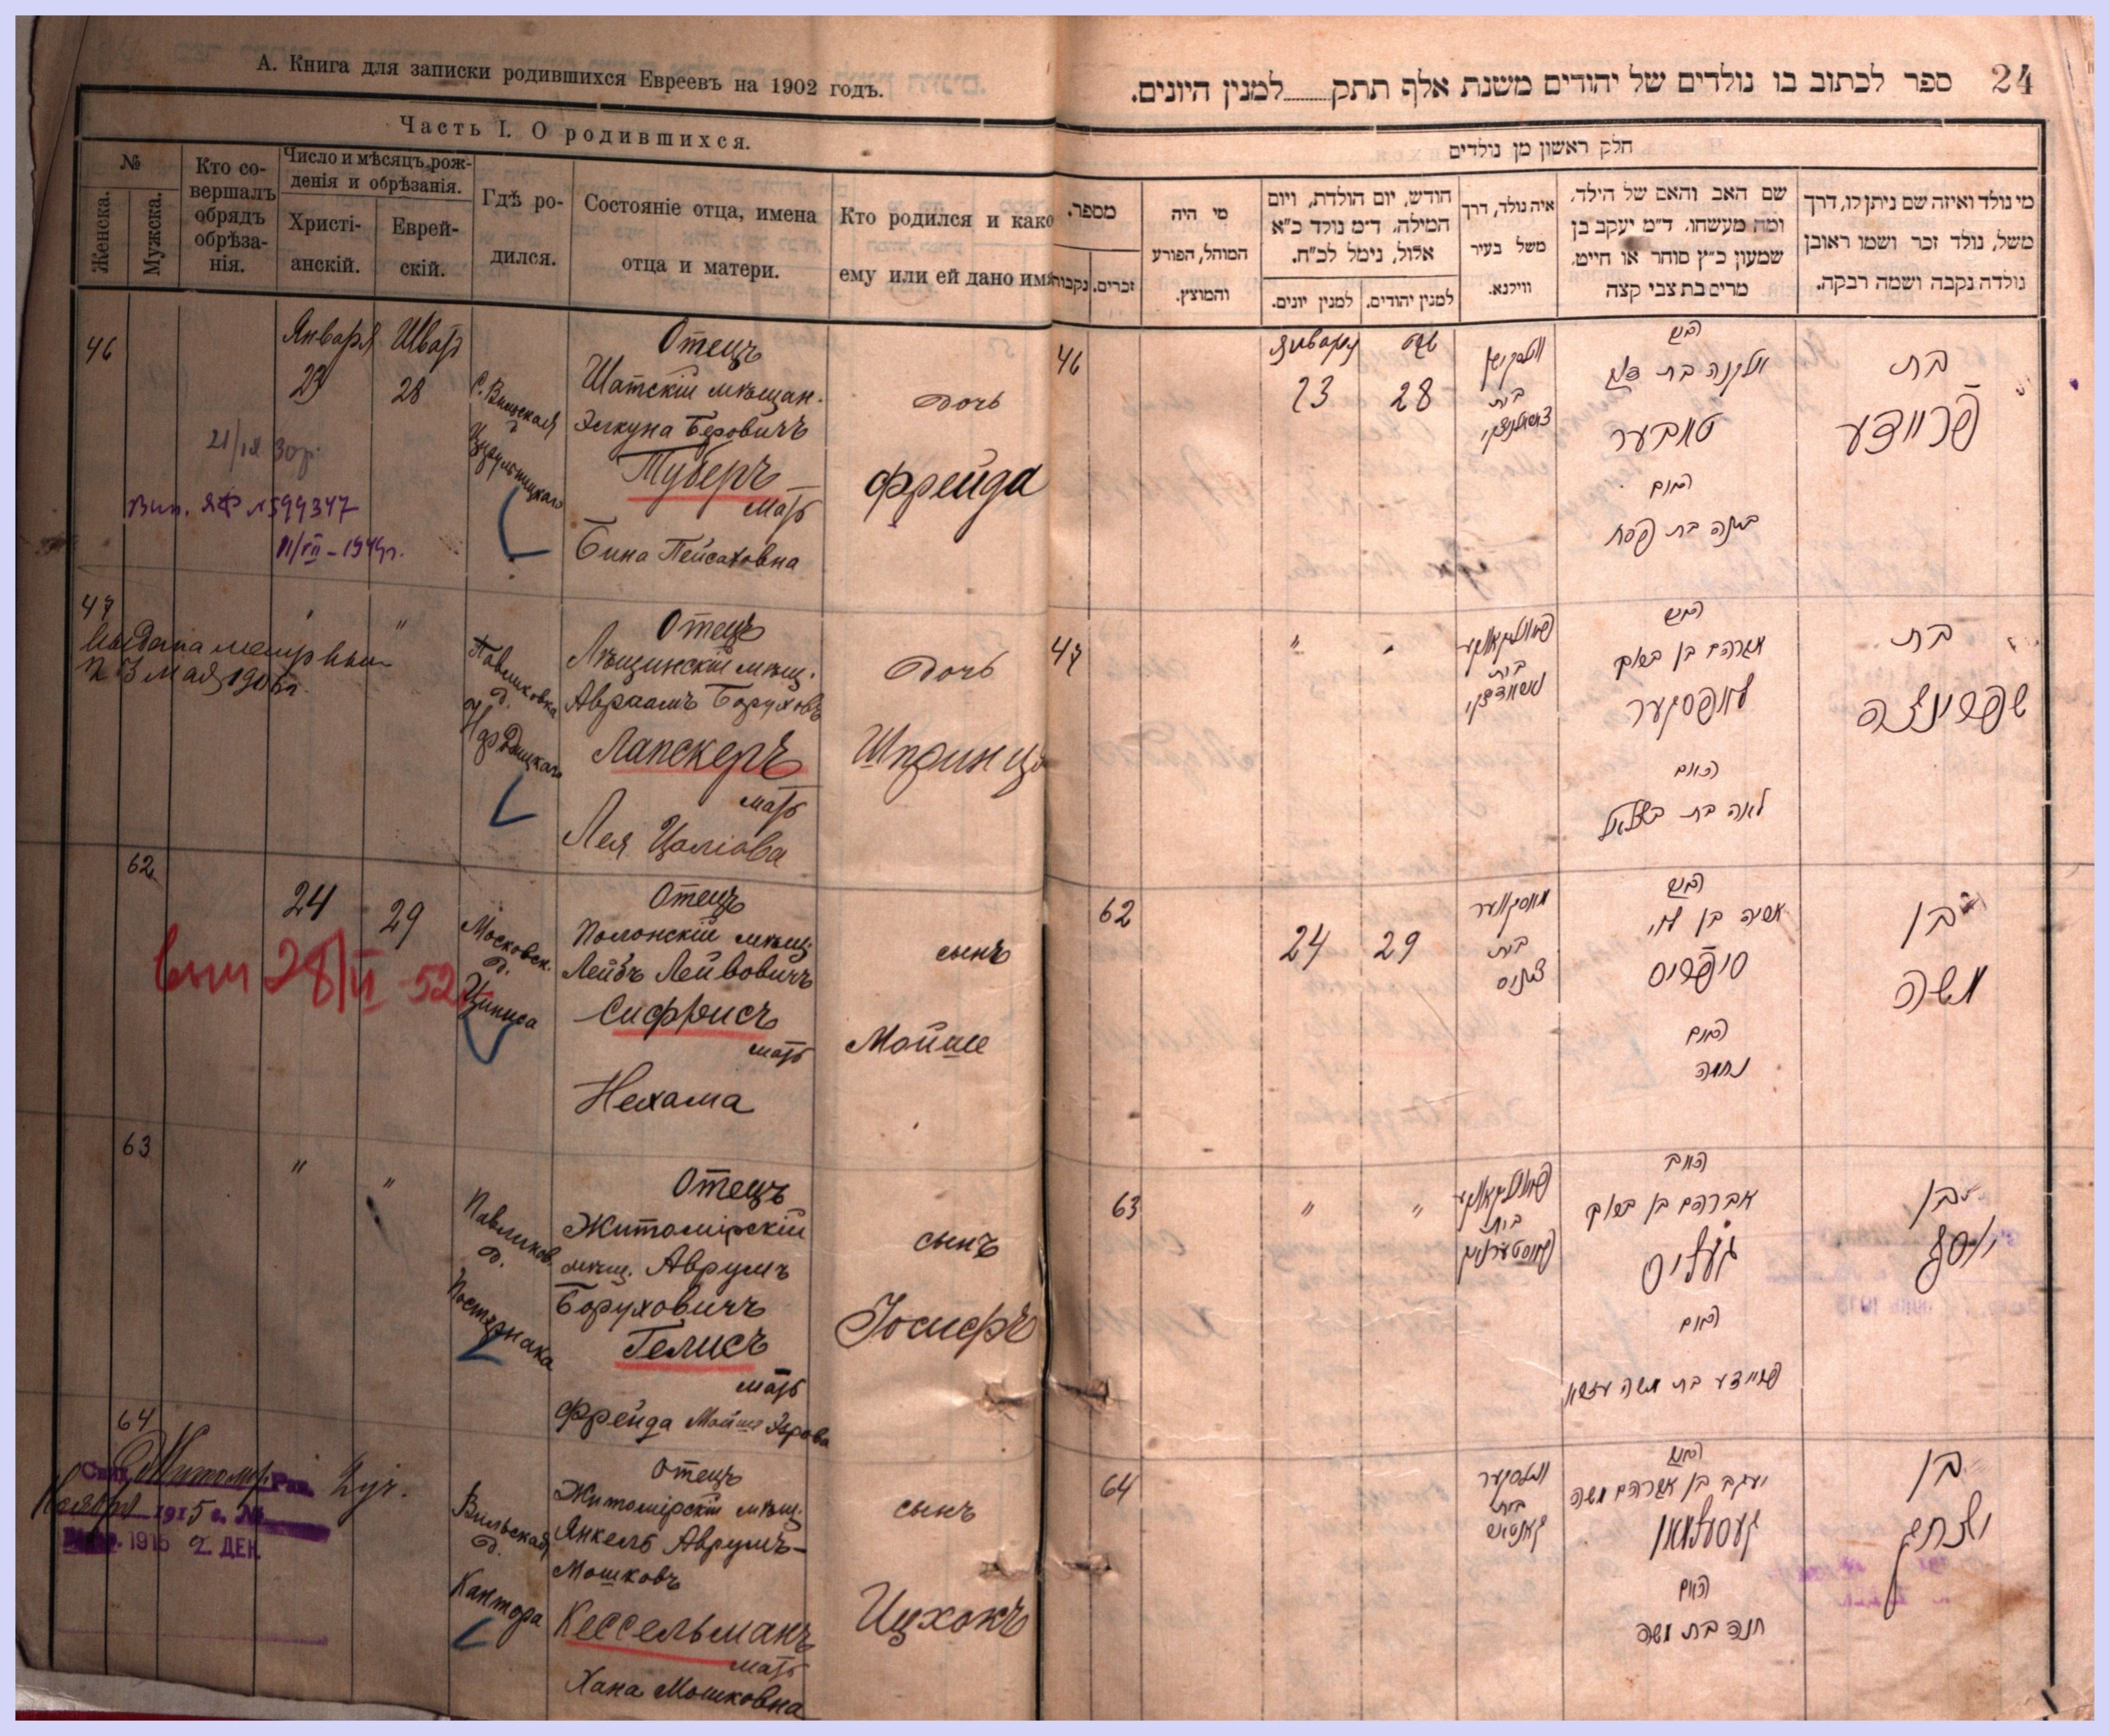 А. Книга для записки родившихся Евреевъ на 1902 годъ.
Часть I. О родившихся.
№
Женска.
Мужска.
Кто со-
вершалъ
обрядъ
обрѣза-
нія.
Число и мѣсяцъ рож-
денія и обрѣзанія.
Христі-
анскій.
Еврей-
скій.
Гдѣ ро-
дился.
Состояніе отца, имена
отца и матери.
Кто родился и како
ему или ей дано имя
46
Января
23
Шват
28
Отецъ
Шатскій мѣщан.
Элкуна Беровичъ
Туберъ
мать
Бина Пейсаховна
дочь
Фрейда
Вып. ЯФ №599347
47
"
"
3 мая 1906 г.
Павликовка
д.
Отецъ
мѣщ.
Авраамъ Боруховъ
Лапскеръ
мать
Лея Цаліова
дочь
Шпринца
62
24
29
вып 28/II-52
Московск.
д.
Циписа
Отецъ
Полонскій мѣщ.
Лейбъ Лейвовичъ
Сифрисъ
мать
Нехама
сынъ
Мойше
63
"
"
Павликов.
д.
Постернака
Отецъ
Житомірскій
мѣщ. Аврумъ
Боруховичъ
Гелисъ
мать
Фрейда Мойше
сынъ
Іосифъ
64
Житомір. Рав.
Ноября 1915 г. №
1915 2 ДЕК.
Вильская
д.
Кантора
Отецъ
Житомірскій мѣщ.
Янкель Аврумъ-
Мошковъ
Кессельманъ
мать
Хана Мошковна
сынъ
Ицхокъ
24
ספר לכתוב בו נולדים של יהודים משנת אלף תתק......למנין היונים.
חלק ראשון מן נולדים
מספר.
נקבות
זכרים.
מי היה
המוהל, הפורע
והמוצץ.
חודש, יום הולדת, ויום
המילה, ד״מ נולד כ״א
אלול, נימל לכ״ח.
למנין יונים.
למנין יהודים.
איה נולד, דרך
משל בעיר
ווילנא.
שם האב והאם של הילד,
ומה מעשהו, ד״מ יעקב בן
שמעון כ״ץ סוחר או חייט,
מרים בת צבי קצה
מי נולד ואיזה שם ניתן לו, דרך
משל, נולד זכר ושמו ראובן
נולדה נקבה ושמה רבקה.
46
Января
23
שבט
28
בית
האב
טובער
האם
בינה בת פסח
בת
פריידע
47
"
"
בית
האב
אברהם בן ברוך
לאפסקער
האם
לאה בת בצלאל
בת
שפרינצה
62
24
29
מאסקווער
בית
ציפיס
האב
סיפריס
האם
נחמה
בן
משה
63
"
"
בית
פאסטערנאק
האב
אברהם בן ברוך
געליס
האם
פריידע בת משה
בן
יוסף
64
ווילסקער
בית
קאנטאר
האב
יעקב בן אברהם משה
קעסעלמאן
האם
חנה בת משה
בן
יצחק